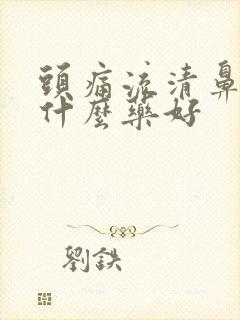 頭痛流清鼻
什麼藥好
劉鉄